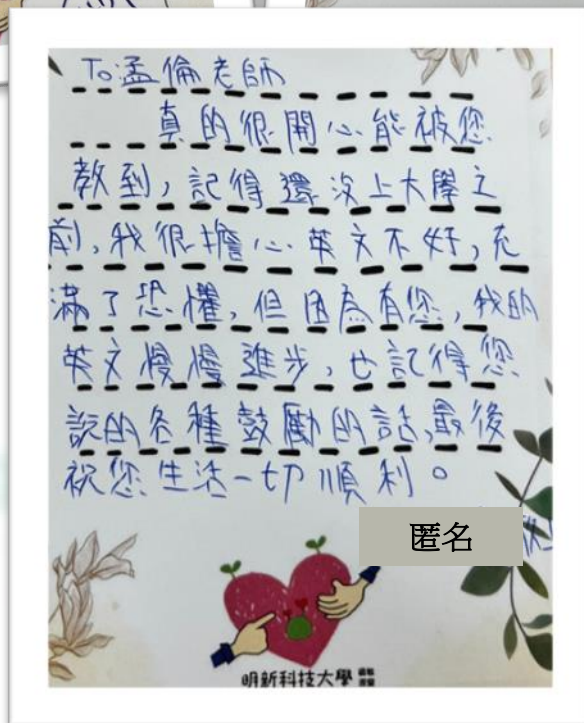 To孟倫老師
真的很開心能被您
教到，記得還沒上大學之
前，我很擔心英文不好，充
滿了恐懼，但因為有您，我的
英文慢慢進步，也記得您
說的各種鼓勵的話，最後
祝您生活一切順利。
匿名
明新科技大學